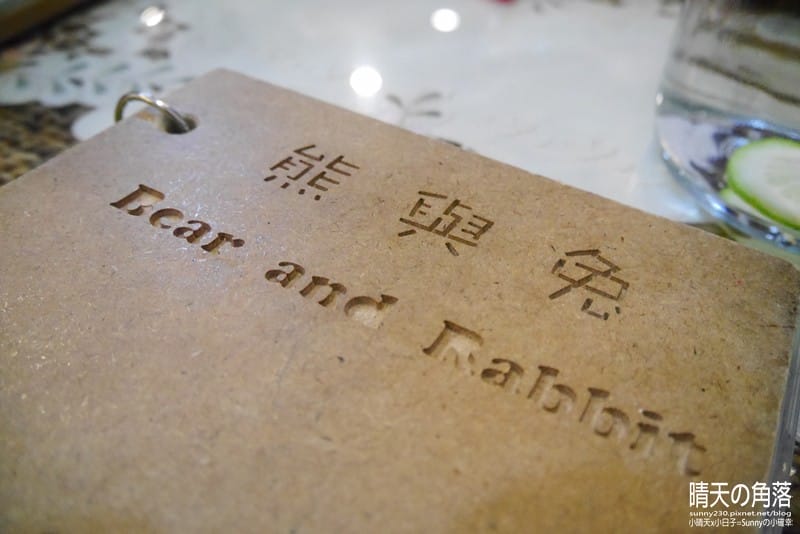 熊與兔
Bear and Rabbit
晴天の角落
sunny230.pixnet.net/blog
小晴天x小日子=Sunnyの小確幸